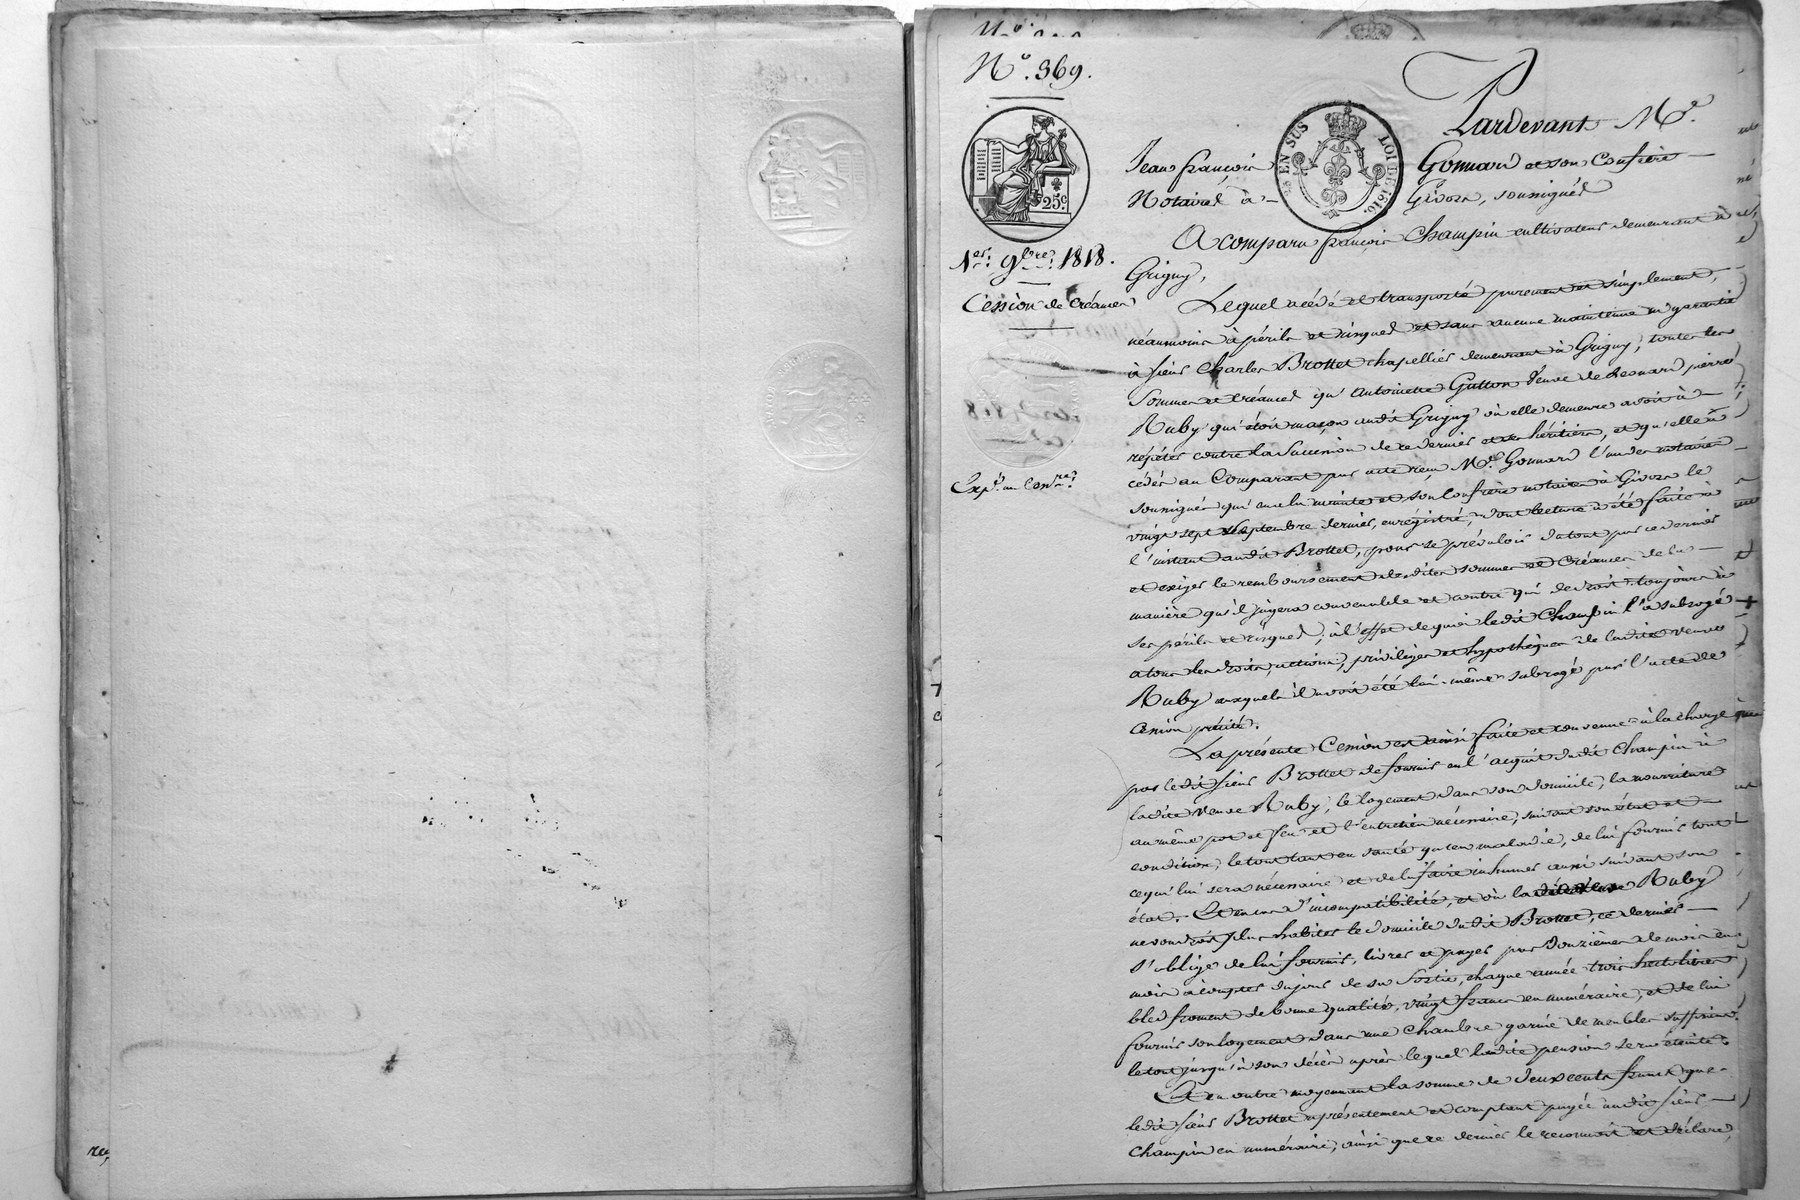 N.º 369.
25.c
EN SUS
LOI DE 1816.
1.er 9bre 1818.
Cession de Créances
Pardevant M.e
Jean françois Gonnard et son Confrère
Notaires à Givors, soussignés
A comparu françois Champin cultivateur demeurant à
Grigny,
Lequel a cédé et transporté purement et simplement,
néanmoins à périls et risques et sans aucune maintenue ni garantie
à sieur Charles Brottet chapellier demeurant à Grigny, toutes les
Sommes et Créances qu'antoinette Gutton Veuve de Leonard pierre
Ruby qui étoit maçon audit Grigny où elle demeure avoit à
répéter contre la Succession de ce dernier et ses héritiers, et qu'elle a
cédés au Comparant par acte reçu M.e Gonnard l'un des notaires
soussignés qui en a la minute et son Confrère notaires à Givors le
vingt sept Septembre dernier, enrégistré, dont lecture a été faite à
l'instant audit Brottet, pour se prévaloir du tout par ce dernier
et exiger le remboursement desdites sommes et Créances de la
manière qu'il jugera convenable et contre qui de droit toujours à
ses périls et risques, à l'effet de quoi ledit Champin l'a subrogé
a tous les droits, actions, privilèges et hypothèques de ladite veuve
Ruby auxquels il avoit été lui-même subrogé par l'acte de
Cession précité.
La présente Cession est ainsi faite et convenue à la charge
par ledit sieur Brottet de fournir en l'acquit dudit Champin à
ladite veuve Ruby, le logement dans son domicile, la nourriture
au même pot et feu et l'entretien nécessaire, suivant son état et
condition, le tout tant en santé qu'en maladie, de lui fournir tout
ce qui lui sera nécessaire et de la faire inhumer aussi suivant son
état. Et en cas d'incompatibilité, et où la dite veuve Ruby
ne voudroit plus habiter le domicile dudit Brottet, ce dernier
s'oblige de lui fournir, livrer et payer par douzièmes de mois en
mois à compter du jour de sa Sortie, chaque année trois hectolitres
bled froment de bonne qualité, vingt francs en numéraire, et de lui
fournir son logement dans une Chambre garnie de meubles suffisans.
le tout jusqu'à son décès après lequel ladite pension sera éteinte.
Et en outre moyennant la somme de deux cents francs que
ledit sieur Brottet a présentement et comptant payée audit sieur
Champin en numéraire, ainsi que ce dernier le reconnoit et déclare,